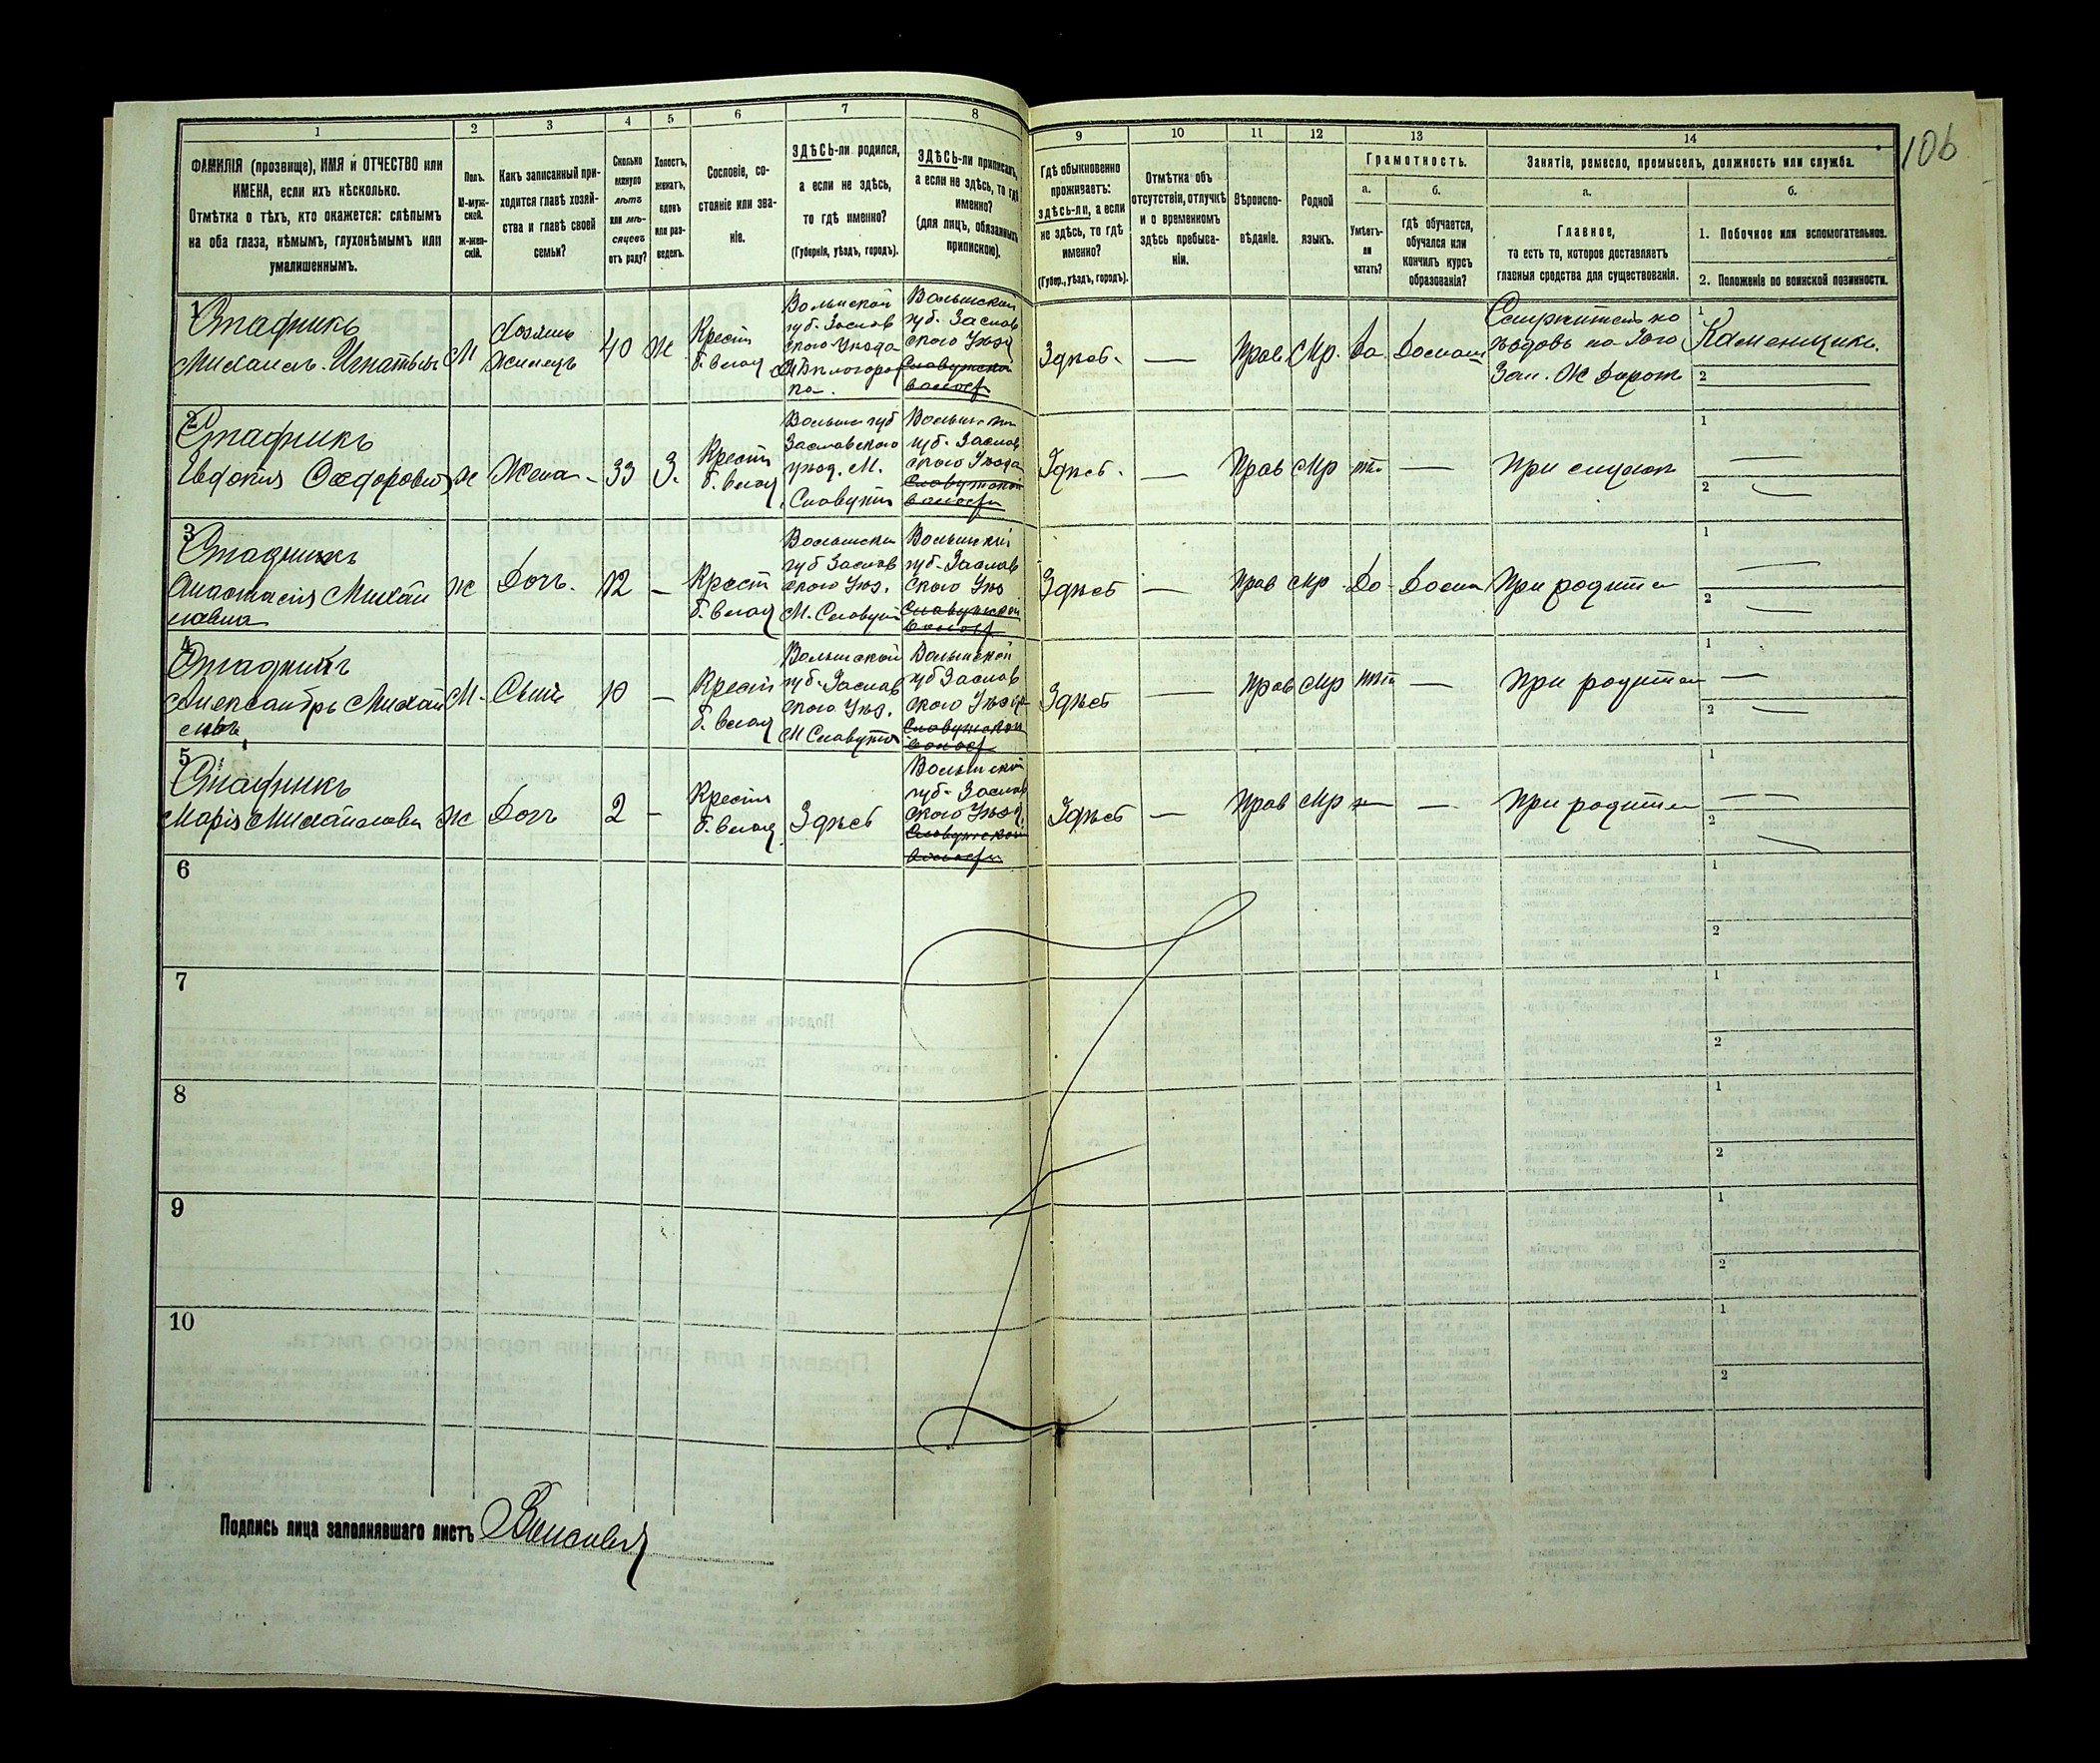 1 2 3 4 5 6 7 8 9 10 11 12 13 14
106
ФАМИЛІЯ (прозвище), ИМЯ и ОТЧЕСТВО или
ИМЕНА, если ихъ нѣсколько.
Отмѣтка о тѣхъ, кто окажется: слѣпымъ
на оба глаза, нѣмымъ, глухонѣмымъ или
умалишеннымъ.
Полъ.
М-муж-
ской.
Ж-жен-
скій.
Какъ записанный при-
ходится главѣ хозяй-
ства и главѣ своей
семьи?
Сколько
минуло
лѣтъ
или мѣ-
сяцевъ
отъ роду?
Холостъ,
женатъ,
вдовъ
или раз-
веденъ.
Сословіе, со-
стояніе или зва-
ніе.
ЗДѢСЬ-ли родился,
а если не здѣсь,
то гдѣ именно?
(Губернія, уѣздъ, городъ).
ЗДѢСЬ-ли приписанъ,
а если не здѣсь, то гдѣ
именно?
(для лицъ, обязанныхъ
припискою).
Гдѣ обыкновенно
проживаетъ:
здѣсь-ли, а если
не здѣсь, то гдѣ
именно?
(Губер., уѣздъ, городъ).
Отмѣтка объ
отсутствіи, отлучкѣ
и о временномъ
здѣсь пребыва-
ніи.
Вѣроиспо-
вѣданіе.
Родной
языкъ.
Грамотность.
а.
Умѣетъ-
ли
читать?
б.
гдѣ обучается,
обучался или
кончилъ курсъ
образованія?
Занятіе, ремесло, промыселъ, должность или служба.
а.
Главное,
то есть то, которое доставляетъ
главныя средства для существованія.
б.
1. Побочное или вспомогательное.
2. Положеніе по воинской повинности.
1
Стадникъ
Михаилъ Игнатьевъ
М
Хозяинъ
Жилецъ
40
Ж
Крестн
б. влад
Волынской
губ. Заслав
скаго Уѣзда
М Бѣлогород
ка.
Волынской
губ. Заслав
скаго Уѣзд
Славутской
волости
Здѣсь
—
Прав
Мр.
Да
Домаш
Юго
Зап. Ж Дорогѣ
1
Каменщикъ.
2
2
Стадникъ
Евдокія Федоровна
Ж
Жена
33
З.
Крестн
б. влад
Волын губ
Заславскаго
уѣзд. М.
Славута
Волынской
губ. Заслав
скаго Уѣзда
Славутской
волости
Здѣсь
—
Прав
Мр
нѣт
—
При мужѣ
1
2
3
Стадникъ
Анастасія Михай
ловна
Ж
Дочь
12
—
Крестн
б. влад
Волынской
губ Заслав
скаго Уѣз.
М. Славута
Волынской
губ. Заслав
скаго Уѣз
Славутской
волости
Здѣсь
—
Прав
Мр
Да
Домаш
При родител
1
2
4
Стадникъ
Александръ Михай
ловъ
М
Сынъ
10
—
Крестн
б. влад
Волынской
губ. Заслав
скаго Уѣз.
М Славута
Волынской
губ Заслав
скаго Уѣзда
Славутской
волости
Здѣсь
—
Прав
Мр
нѣт
—
При родител
1
2
5
Стадникъ
Марія Михайловна
Ж
Дочь
2
—
Крестн
б. влад
Здѣсь
Волынской
губ. Заслав
скаго Уѣзд.
Славутской
волости
Здѣсь
—
Прав
Мр
—
При родител
1
2
6
1
2
7
1
2
8
1
2
9
1
2
10
1
2
Подпись лица заполнявшаго листъ